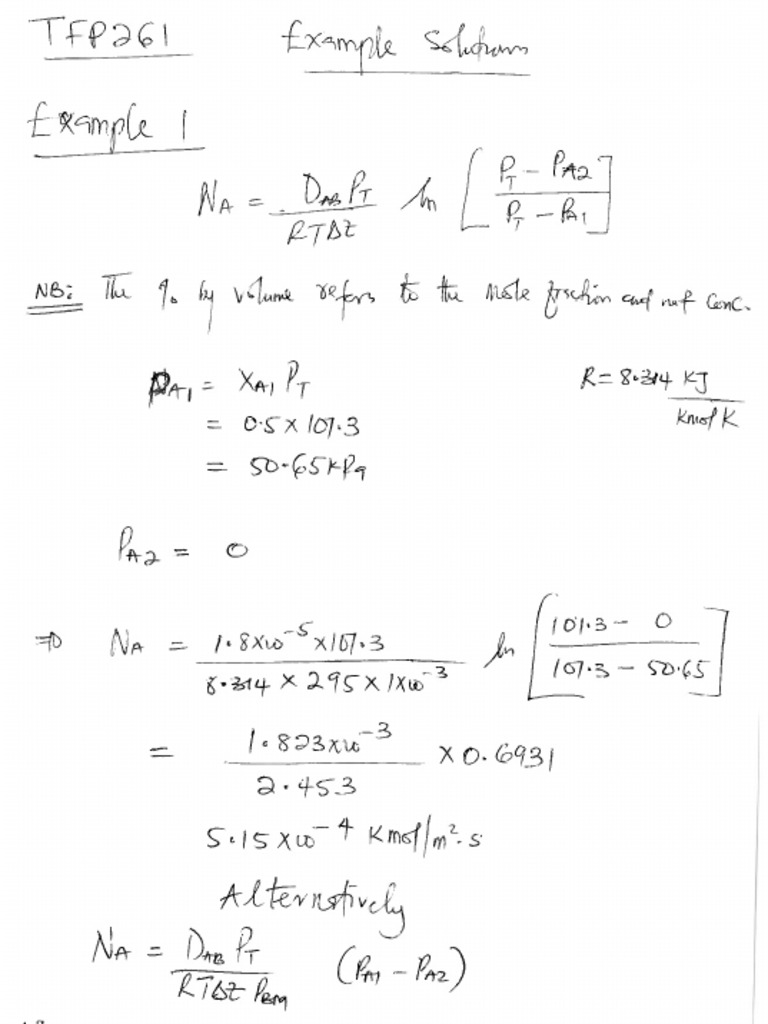 TFP261 Example Solutions
Example 1
N_A = D_AB P_T / RTΔZ ln [ P_T - P_A2 / P_T - P_A1 ]
NB: The % by volume refers to the mole fraction and not conc.
P_A1 = X_A1 P_T R = 8.314 KJ / Kmol K
= 0.5 × 101.3
= 50.65 KPa
P_A2 = 0
⇒ N_A = 1.8×10^-5 × 101.3 / 8.314 × 295 × 1×10^-3 ln [ 101.3 - 0 / 101.3 - 50.65 ]
= 1.823×10^-3 / 2.453 × 0.6931
5.15×10^-4 Kmol/m².s
Alternatively
N_A = D_AB P_T / RTΔZ P_BM (P_A1 - P_A2)